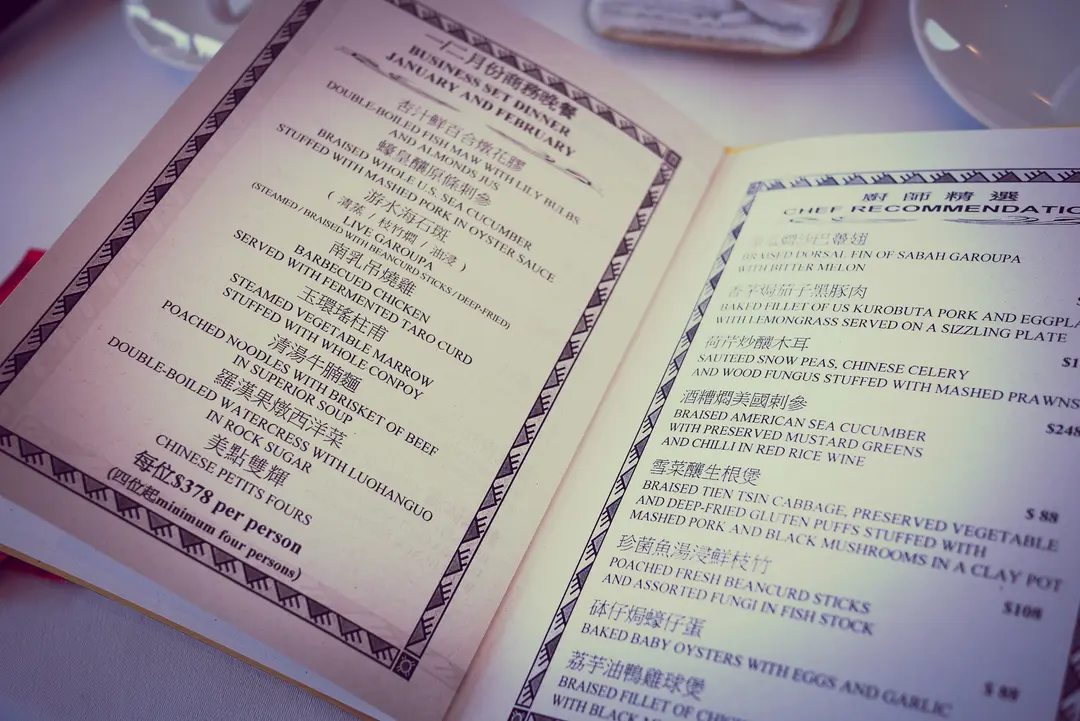 一二月份商務晚餐
BUSINESS SET DINNER
JANUARY AND FEBRUARY
杏汁鮮百合燉花膠
DOUBLE-BOILED FISH MAW WITH LILY BULBS
AND ALMONDS JUS
蠔皇釀原條刺參
BRAISED WHOLE U.S. SEA CUCUMBER
STUFFED WITH MASHED PORK IN OYSTER SAUCE
游水海石斑
( 清蒸 / 枝竹燜 / 油浸 )
LIVE GAROUPA
(STEAMED / BRAISED WITH BEANCURD STICKS / DEEP-FRIED)
南乳吊燒雞
BARBECUED CHICKEN
SERVED WITH FERMENTED TARO CURD
玉環瑤柱甫
STEAMED VEGETABLE MARROW
STUFFED WITH WHOLE CONPOY
清湯牛腩麵
POACHED NOODLES WITH BRISKET OF BEEF
IN SUPERIOR SOUP
羅漢果燉西洋菜
DOUBLE-BOILED WATERCRESS WITH LUOHANGUO
IN ROCK SUGAR
美點雙輝
CHINESE PETITS FOURS
每位$378 per person
(四位起minimum four persons)
廚師精選
CHEF RECOMMENDATIO
沙巴躉翅
BRAISED DORSAL FIN OF SABAH GAROUPA
WITH BITTER MELON
香茅焗茄子黑豚肉
BAKED FILLET OF US KUROBUTA PORK AND EGGPLA
WITH LEMONGRASS SERVED ON A SIZZLING PLATE
荷芹炒釀木耳
SAUTEED SNOW PEAS, CHINESE CELERY
AND WOOD FUNGUS STUFFED WITH MASHED PRAWNS
$1
酒糟燜美國刺參
BRAISED AMERICAN SEA CUCUMBER
WITH PRESERVED MUSTARD GREENS
AND CHILLI IN RED RICE WINE
$248
雪菜釀生根煲
BRAISED TIEN TSIN CABBAGE, PRESERVED VEGETABLE
AND DEEP-FRIED GLUTEN PUFFS STUFFED WITH
MASHED PORK AND BLACK MUSHROOMS IN A CLAY POT
$ 88
珍菌魚湯浸鮮枝竹
POACHED FRESH BEANCURD STICKS
AND ASSORTED FUNGI IN FISH STOCK
$108
砵仔焗蠔仔蛋
BAKED BABY OYSTERS WITH EGGS AND GARLIC
$ 88
荔芋油鴨雞球煲
BRAISED FILLET OF
WITH BLACK